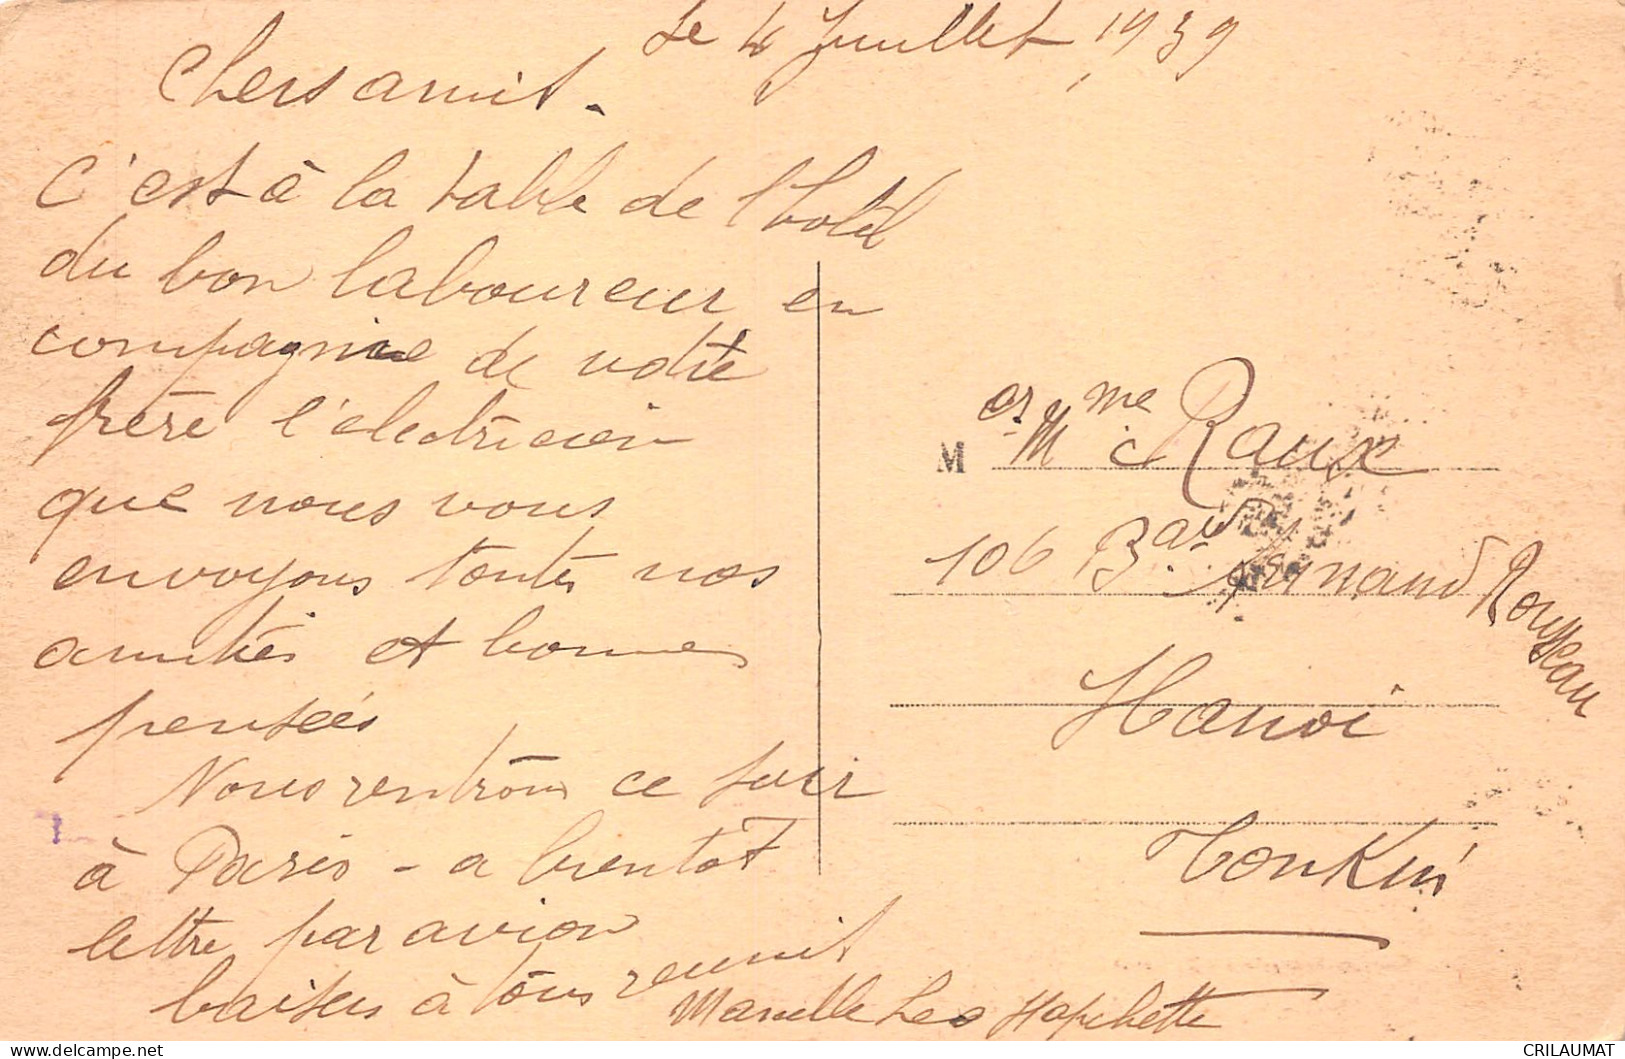 Le 4 Juillet, 1939
Chers amis.
C'est à la table de l'hotel
du bon laboureur en
compagnie de votre
frère l'électricien
que nous vous
envoyons toutes nos
amitiés et bonnes
pensées
Nous rentrons ce soir
à Paris - a bientot
lettre par avion
baisers à tous reunit
Marcelle Leo
M er Mme Raux
106 Bard Armand Rousseau
Hanoi
Tonkin
CRILAUMAT